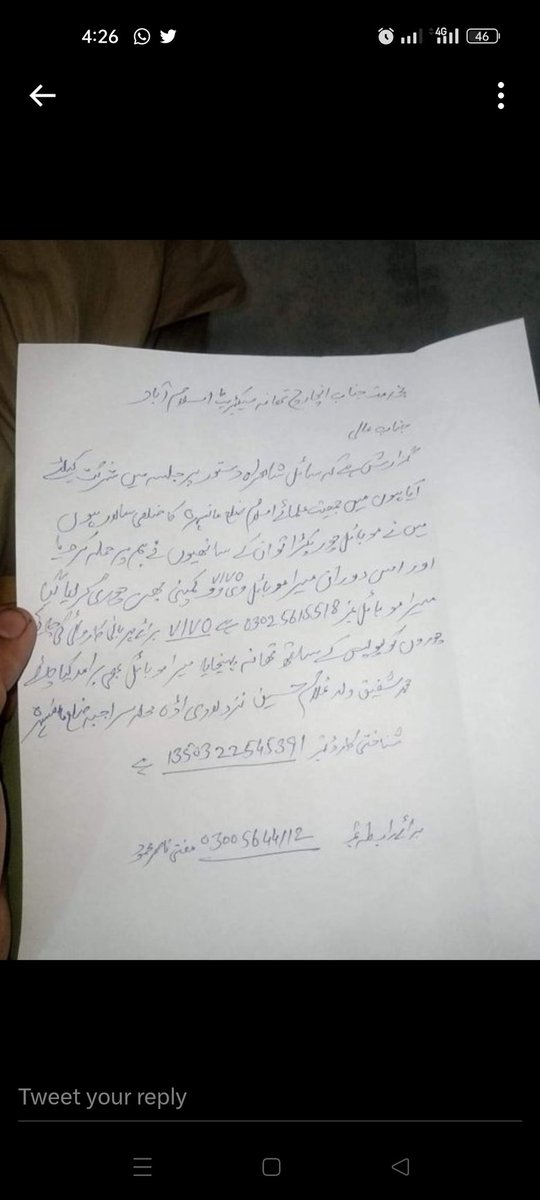 4:26
4G
46
بخدمت جناب انچارج تھانہ سیکٹریٹ اسلام آباد
جناب عالی
گزارش ہے کہ سائل شاہراہ دستور پر جلسہ میں شرکت کیلئے
آیا ہوں میں جمعیت علمائے اسلام ضلع مانسہرہ کا ضلعی سالار ہوں
میں نے موبائل چور پکڑا تو ان کے ساتھیوں نے ہم پر حملہ کر دیا
اور اس دوران میرا موبائل وی وو VIVO کمپنی بھی چوری کر لیا گیا
میرا موبائل نمبر 03025615518 ہے VIVO برائے مہربانی کاروائی کی جائے
چوروں کو پولیس کے ساتھ تھانہ پہنچایا میرا موبائل بھی برامد کیا جائے
محمد شفیق ولد غلام حسین نزد لاری اڈہ محلہ ضلع مانسہرہ
شناختی کارڈ نمبر 1350322545391 ہے
برائے رابطہ نمبر 03005644112 مفتی ناصر محمود
Tweet your reply